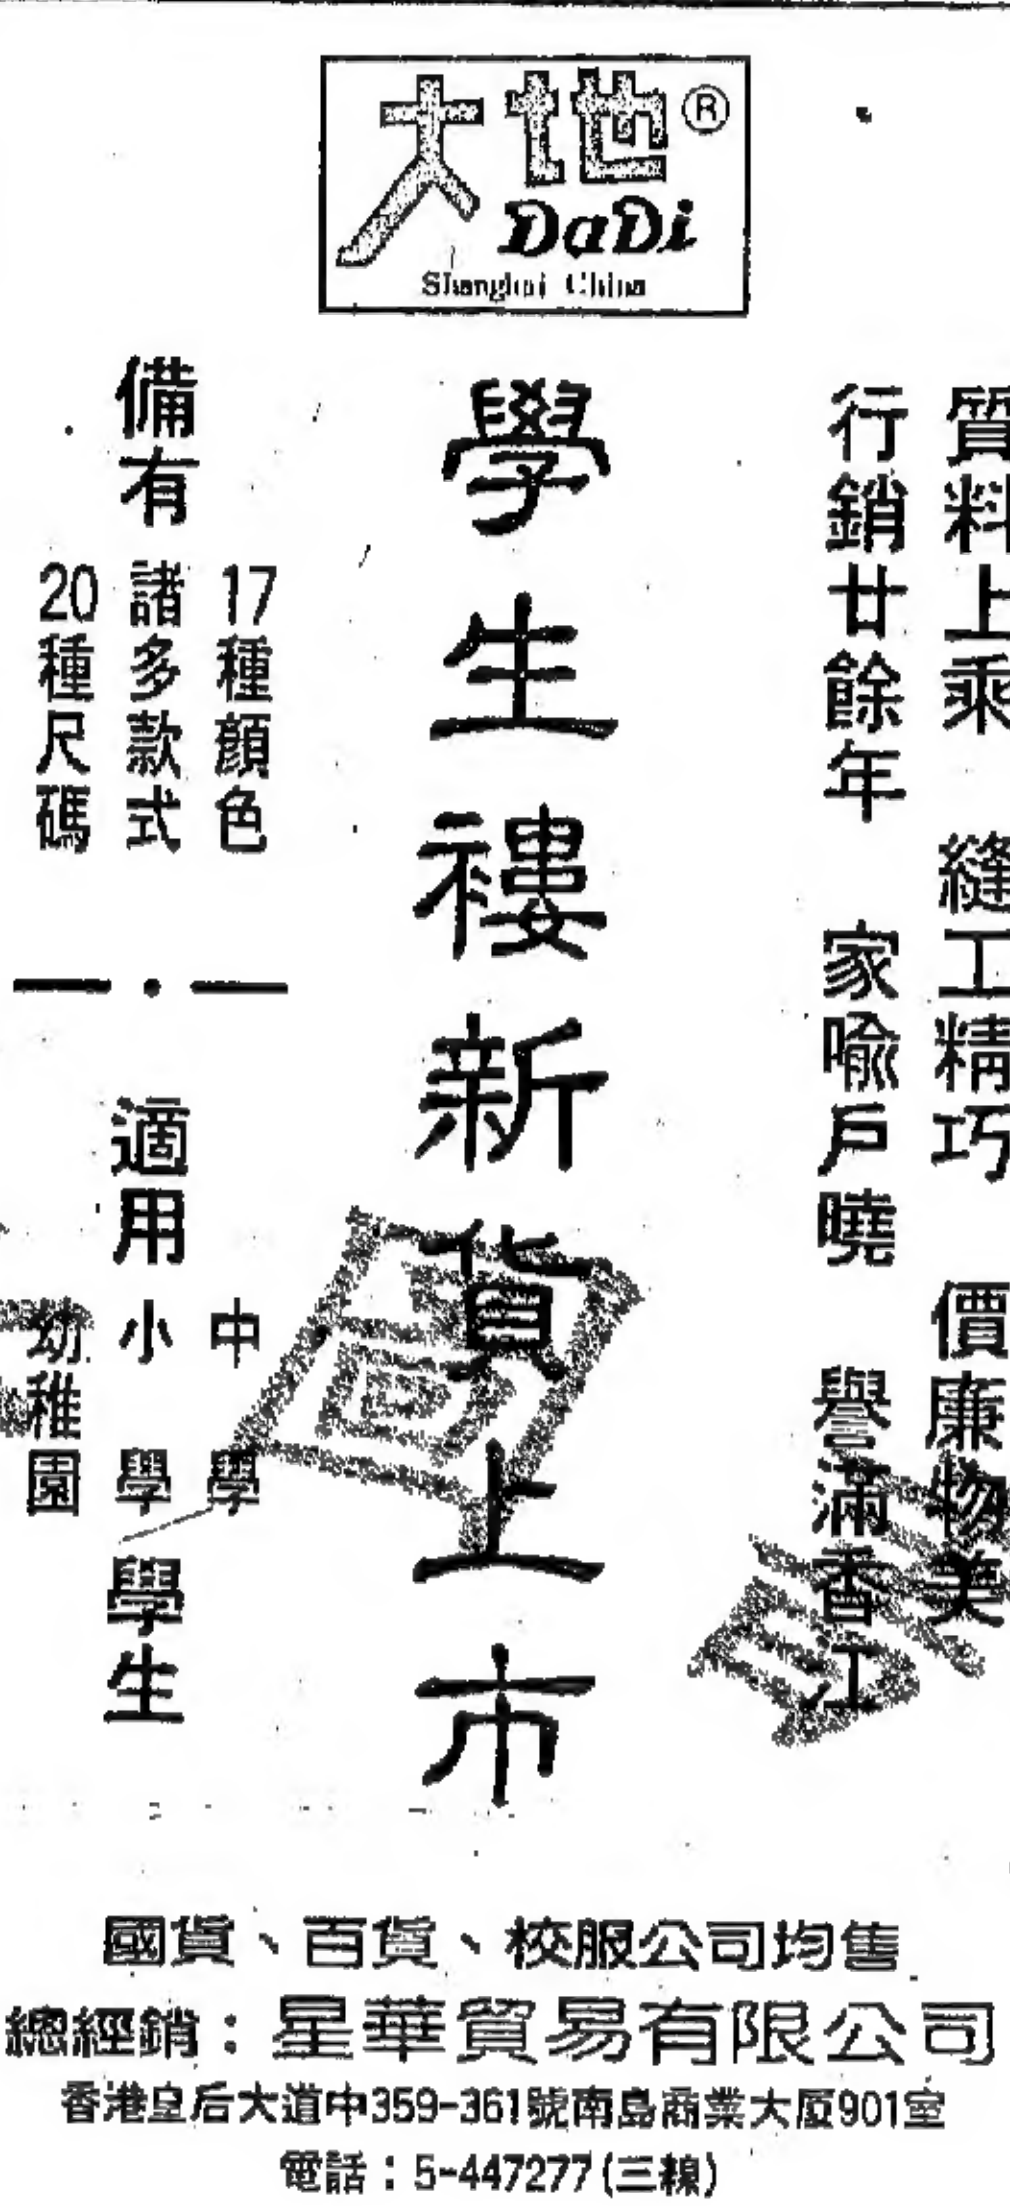 大地®
DaDi
Shanghai China
質料上乘 縫工精巧 價廉物美
行銷廿餘年 家喻戶曉 譽滿香江
學生褸新貨上市
備有
17種顏色
諸多款式
20種尺碼
適用
中學
小學
幼稚園
學生
國貨、百貨、校服公司均售
總經銷：星華貿易有限公司
香港皇后大道中359-361號南島商業大厦901室
電話：5-447277(三線)